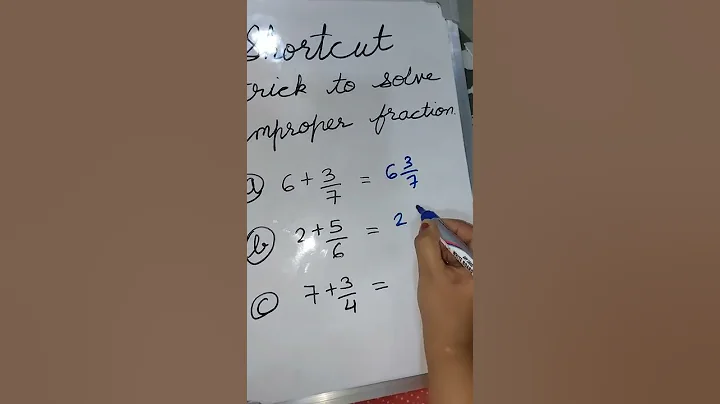 Shortcut
trick to solve
improper fraction.
a) 6 + 3/7 = 6 3/7
b) 2 + 5/6 = 2
c) 7 + 3/4 =